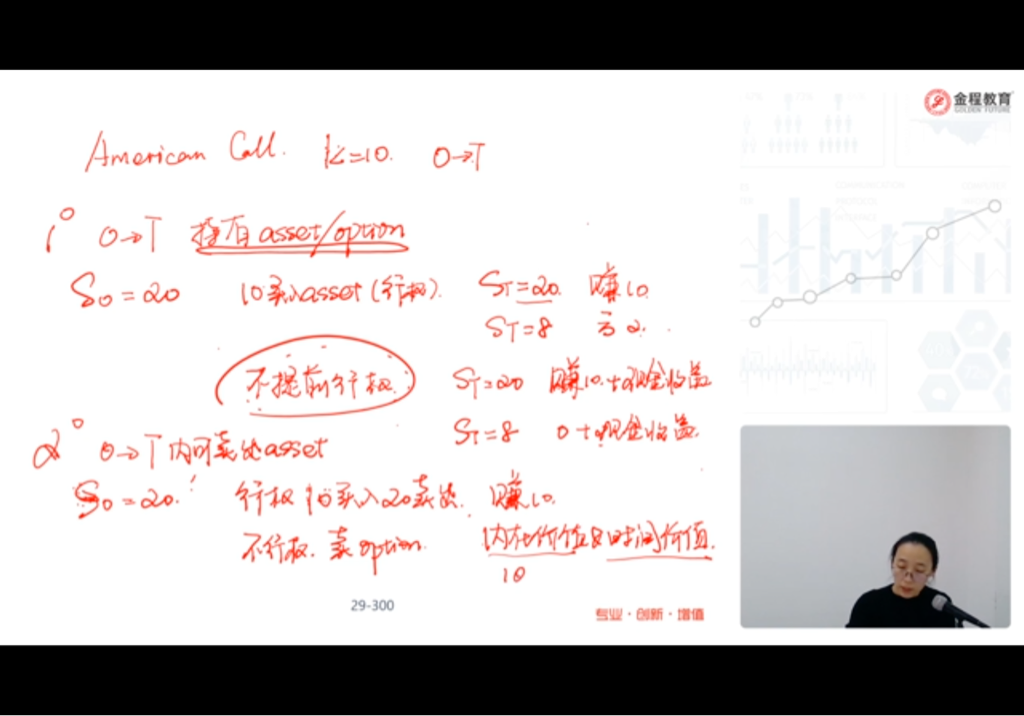 金程教育
GOLDEN FUTURE
American Call. K=10. 0→T
1° 0→T 持有asset/option
S0=20 10买入asset(行权). ST=20. 赚10.
ST=8 亏2.
不提前行权. ST=20 赚10.+现金收益
ST=8 0+现金收益.
2° 0→T内可卖出asset
S0=20. 行权 10买入20卖出. 赚10.
不行权. 卖option. 内在价值&时间价值.
10
29-300
专业·创新·增值